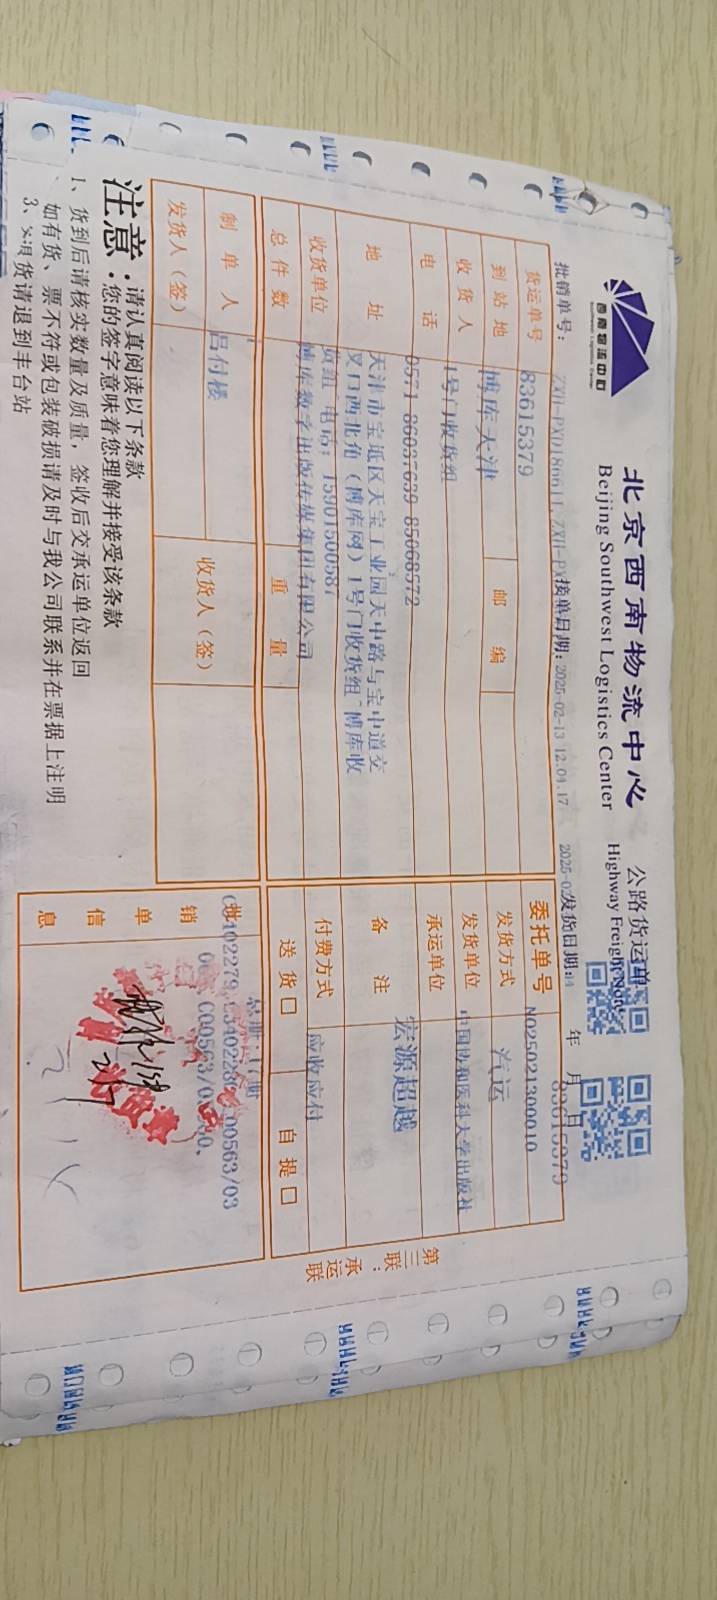 西南物流中心
Southwest Logistics Center
北京西南物流中心 公路货运单
Beijing Southwest Logistics Center Highway Freight Note
批销单号: ZXH-PX0186611, ZXH-PX 接单日期: 2025-02-13 12.01.17 发货日期: 年 月 日
83615379
货运单号 83615379 委托单号 N0250213000010
到站地 博库天津 邮编 发货方式 汽运
收货人 1号门收货组 发货单位 中国协和医科大学出版社
电话 0571-86037639 85068572 承运单位 宏源超越
地址 天津市宝坻区天宝工业园天中路与宝中道交
叉口西北角(博库网)1号门收货组 博库收
货组 电话: 15901500587
备注
收货单位 博库数字出版传媒集团有限公司 付费方式 应收应付
总件数 重量 送货□ 自提□
制单人 吕付楼 收货人(签)
发货人(签)
批销单信息
第三联:承运联
注意:请认真阅读以下条款
您的签字意味着您理解并接受该条款
1、货到后请核实数量及质量,签收后交承运单位返回
如有货、票不符或包装破损请及时与我公司联系并在票据上注明
货请退到丰台站